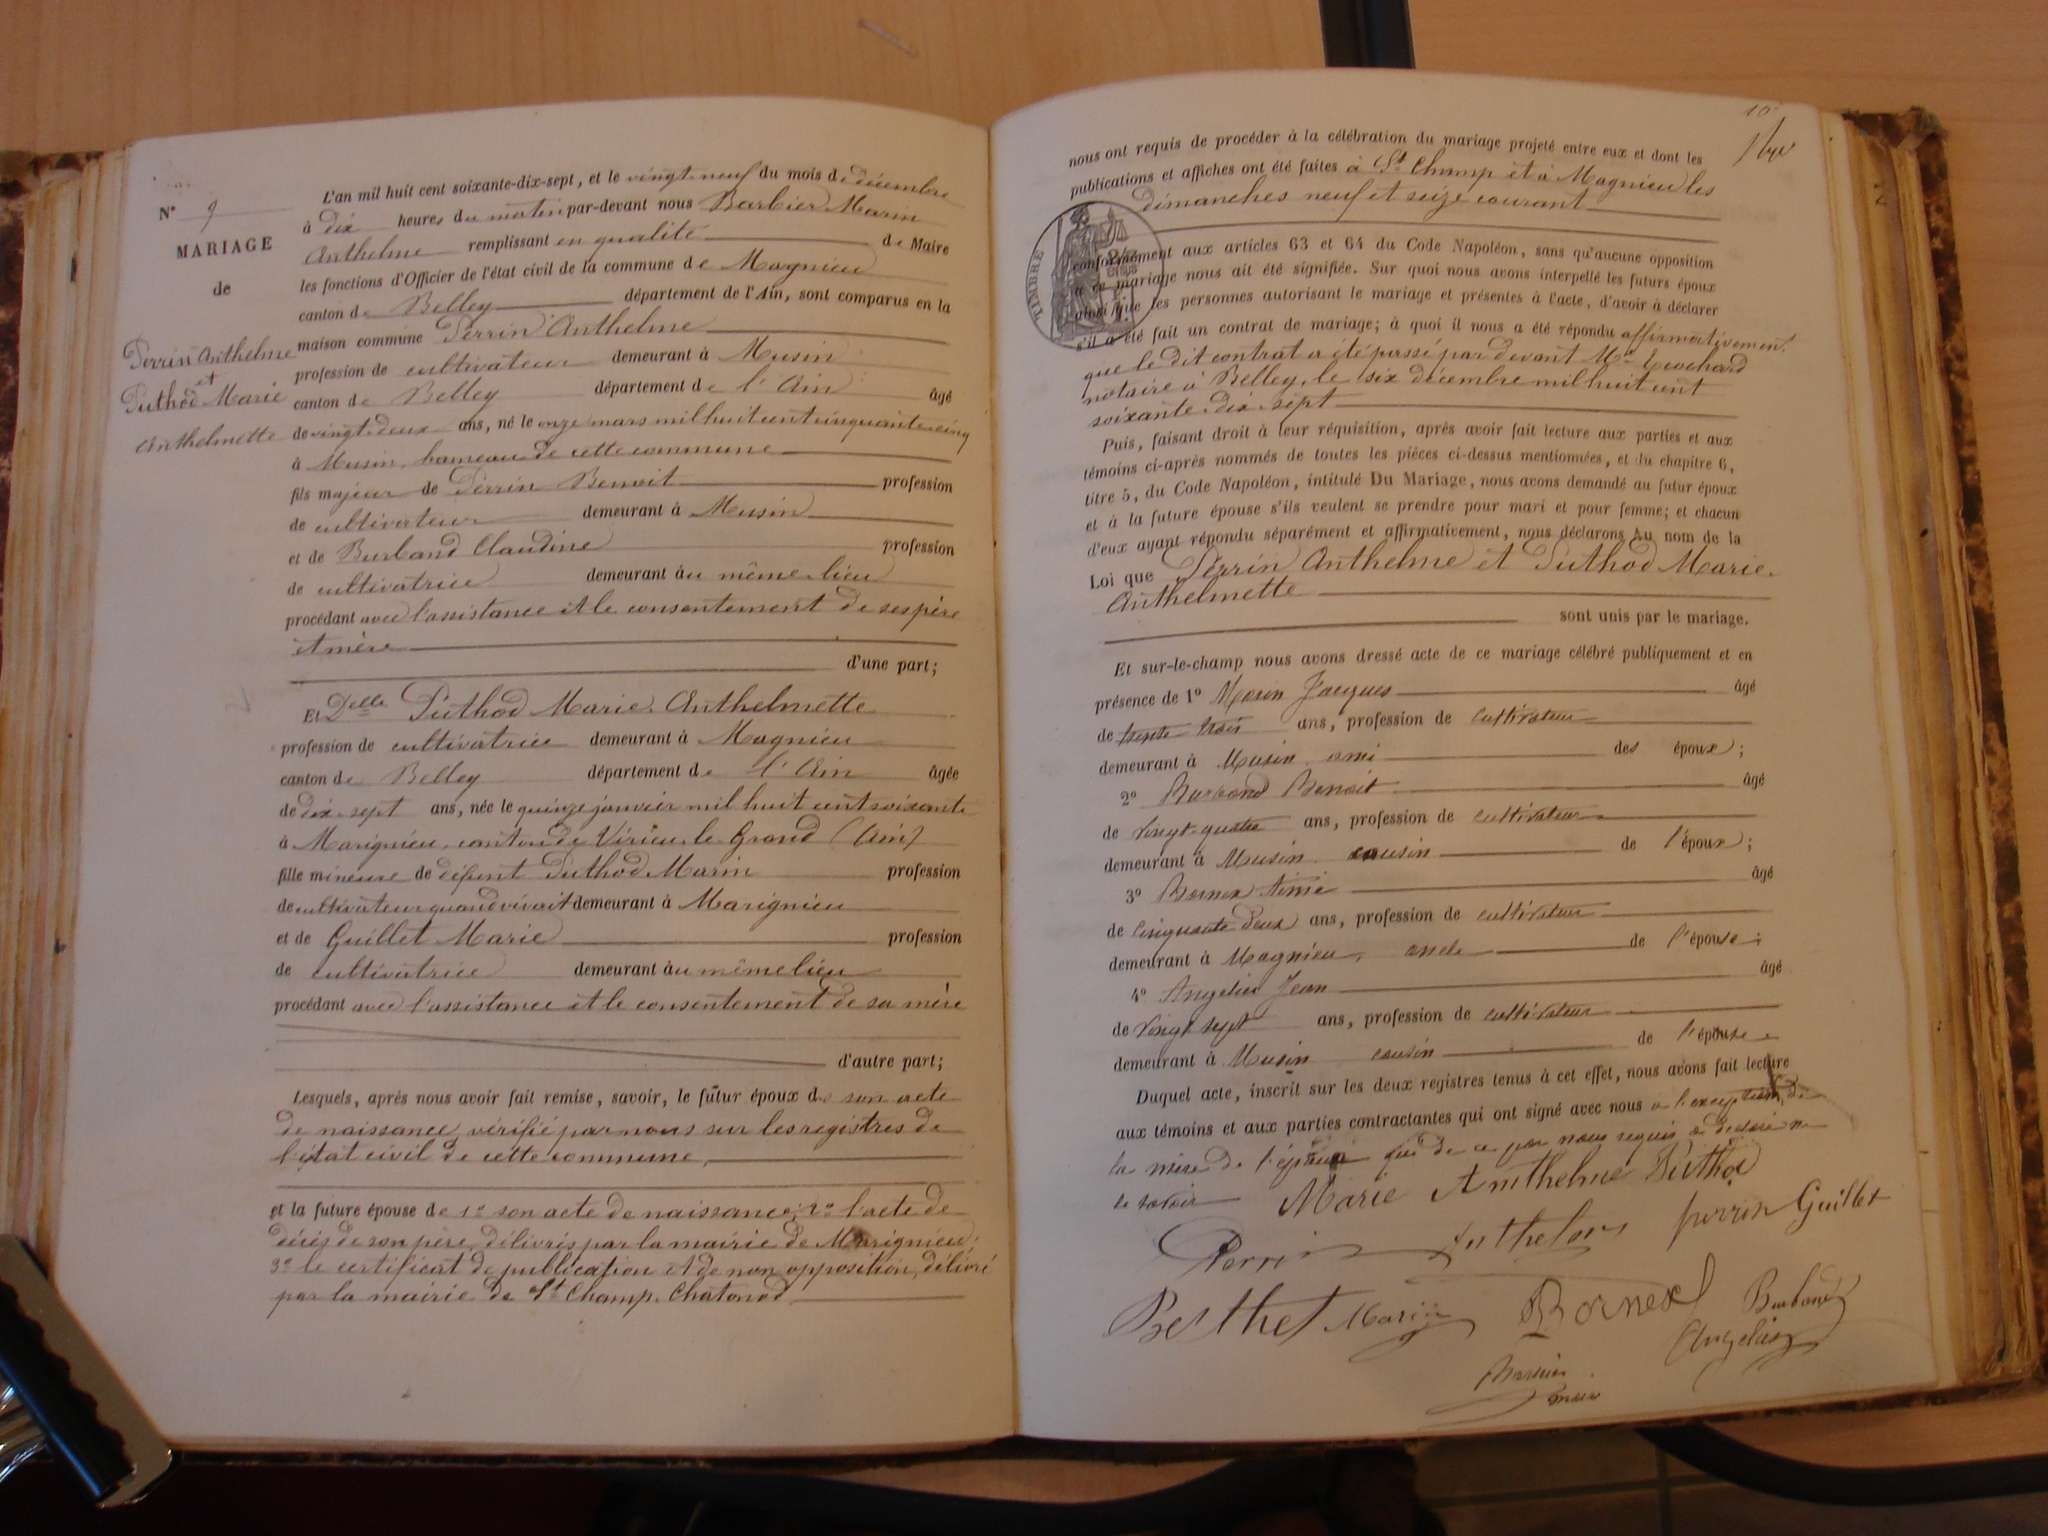 N° 9
MARIAGE
de
Perrin Anthelme
et
Puthod Marie
Anthelmette
L'an mil huit cent soixante-dix-sept, et le vingt neuf du mois de décembre
à dix heures du matin par-devant nous Barbier Marin
Anthelme remplissant en qualité de Maire
les fonctions d'Officier de l'état civil de la commune de Magnieu
canton de Belley département de l'Ain, sont comparus en la
maison commune Perrin Anthelme
profession de cultivateur demeurant à Musin
canton de Belley département de l'Ain âgé
de vingt-deux ans, né le onze mars mil huit cent cinquante-cinq
à Musin, hameau de cette commune
fils majeur de Perrin Benoit profession
de cultivateur demeurant à Musin
et de Burband Claudine profession
de cultivatrice demeurant àu même-lieu
procédant avec l'assistance et le consentement de ses père
et mère
d'une part;
Et Delle Puthod Marie-Anthelmette
profession de cultivatrice demeurant à Magnieu
canton de Belley département de l'Ain âgée
de dix-sept ans, née le quinze janvier mil huit cent soixante
à Marignieu, canton de Virieu-le-Grand (Ain)
fille mineure de défunt Puthod Marin profession
de cultivateur quand vivait demeurant à Marignieu
et de Guillet Marie profession
de cultivatrice demeurant àu même lieu
procédant avec l'assistance et le consentement de sa mère
d'autre part;
Lesquels, après nous avoir fait remise, savoir, le futur époux de son acte
de naissance, vérifié par nous sur les registres de
l'état civil de cette commune,
et la future épouse de 1° son acte de naissance; 2° l'acte de
décès de son père, délivrés par la mairie de Marignieu;
3° le certificat de publication et de non opposition, délivré
par la mairie de St Champ-Chatonod
10
nous ont requis de procéder à la célébration du mariage projeté entre eux et dont les
publications et affiches ont été faites à St Champ et à Magnieu les
dimanches neuf et seize courant
TIMBRE
conformément aux articles 63 et 64 du Code Napoléon, sans qu'aucune opposition
à ce mariage nous ait été signifiée. Sur quoi nous avons interpellé les futurs époux
ainsi que les personnes autorisant le mariage et présentes à l'acte, d'avoir à déclarer
s'il a été fait un contrat de mariage; à quoi il nous a été répondu affirmativement
que le dit contrat a été passé par devant Me
notaire à Belley, le six décembre mil huit cent
soixante-dix-sept
Puis, faisant droit à leur réquisition, après avoir fait lecture aux parties et aux
témoins ci-après nommés de toutes les pièces ci-dessus mentionnées, et du chapitre 6,
titre 5, du Code Napoléon, intitulé Du Mariage, nous avons demandé au futur époux
et à la future épouse s'ils veulent se prendre pour mari et pour femme; et chacun
d'eux ayant répondu séparément et affirmativement, nous déclarons Au nom de la
Loi que Perrin Anthelme et Puthod Marie-
Anthelmette
sont unis par le mariage.
Et sur-le-champ nous avons dressé acte de ce mariage célébré publiquement et en
présence de 1° Morin Jacques âgé
de trente trois ans, profession de cultivateur
demeurant à Musin ami des époux;
2° Burband Benoit âgé
de vingt-quatre ans, profession de cultivateur
demeurant à Musin cousin de l'époux;
3° Bornex âgé
de cinquante deux ans, profession de cultivateur
demeurant à Magnieu, oncle de l'épouse;
4° Angelier Jean âgé
de vingt sept ans, profession de cultivateur
demeurant à Musin cousin de l'épouse
Duquel acte, inscrit sur les deux registres tenus à cet effet, nous avons fait lecture
aux témoins et aux parties contractantes qui ont signé avec nous à l'exception de
la mère de l'époux qui de ce par nous requis a déclaré ne
le savoir Marie Anthelme Puthod
Perrin Anthelme perrin Guillet
Berthet Marin Bornex Burband
Angelier
Barbier
maire